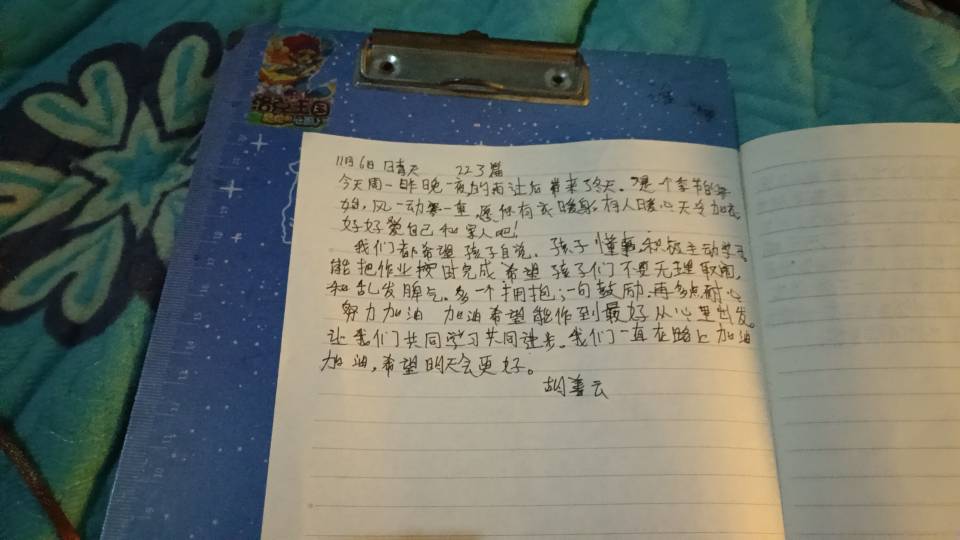 洛克王国
11月6日 日青天 223篇
今天周一昨晚一夜的雨让后带来了冬天。是一个季节的
始,风一动寒一重,愿你有衣暖身,有人暖心天冷加衣
好好爱自己和家人吧!
我们都希望孩子自觉。孩子懂事积极主动学习
能把作业按时完成希望孩子们不要无理取闹,
和乱发脾气。多一个拥抱;一句鼓励.再多点耐心
努力加油 加油希望能作到最好从心里出发。
让我们共同学习共同进步。我们一直在路上加油
加油,希望明天会更好。
胡善云